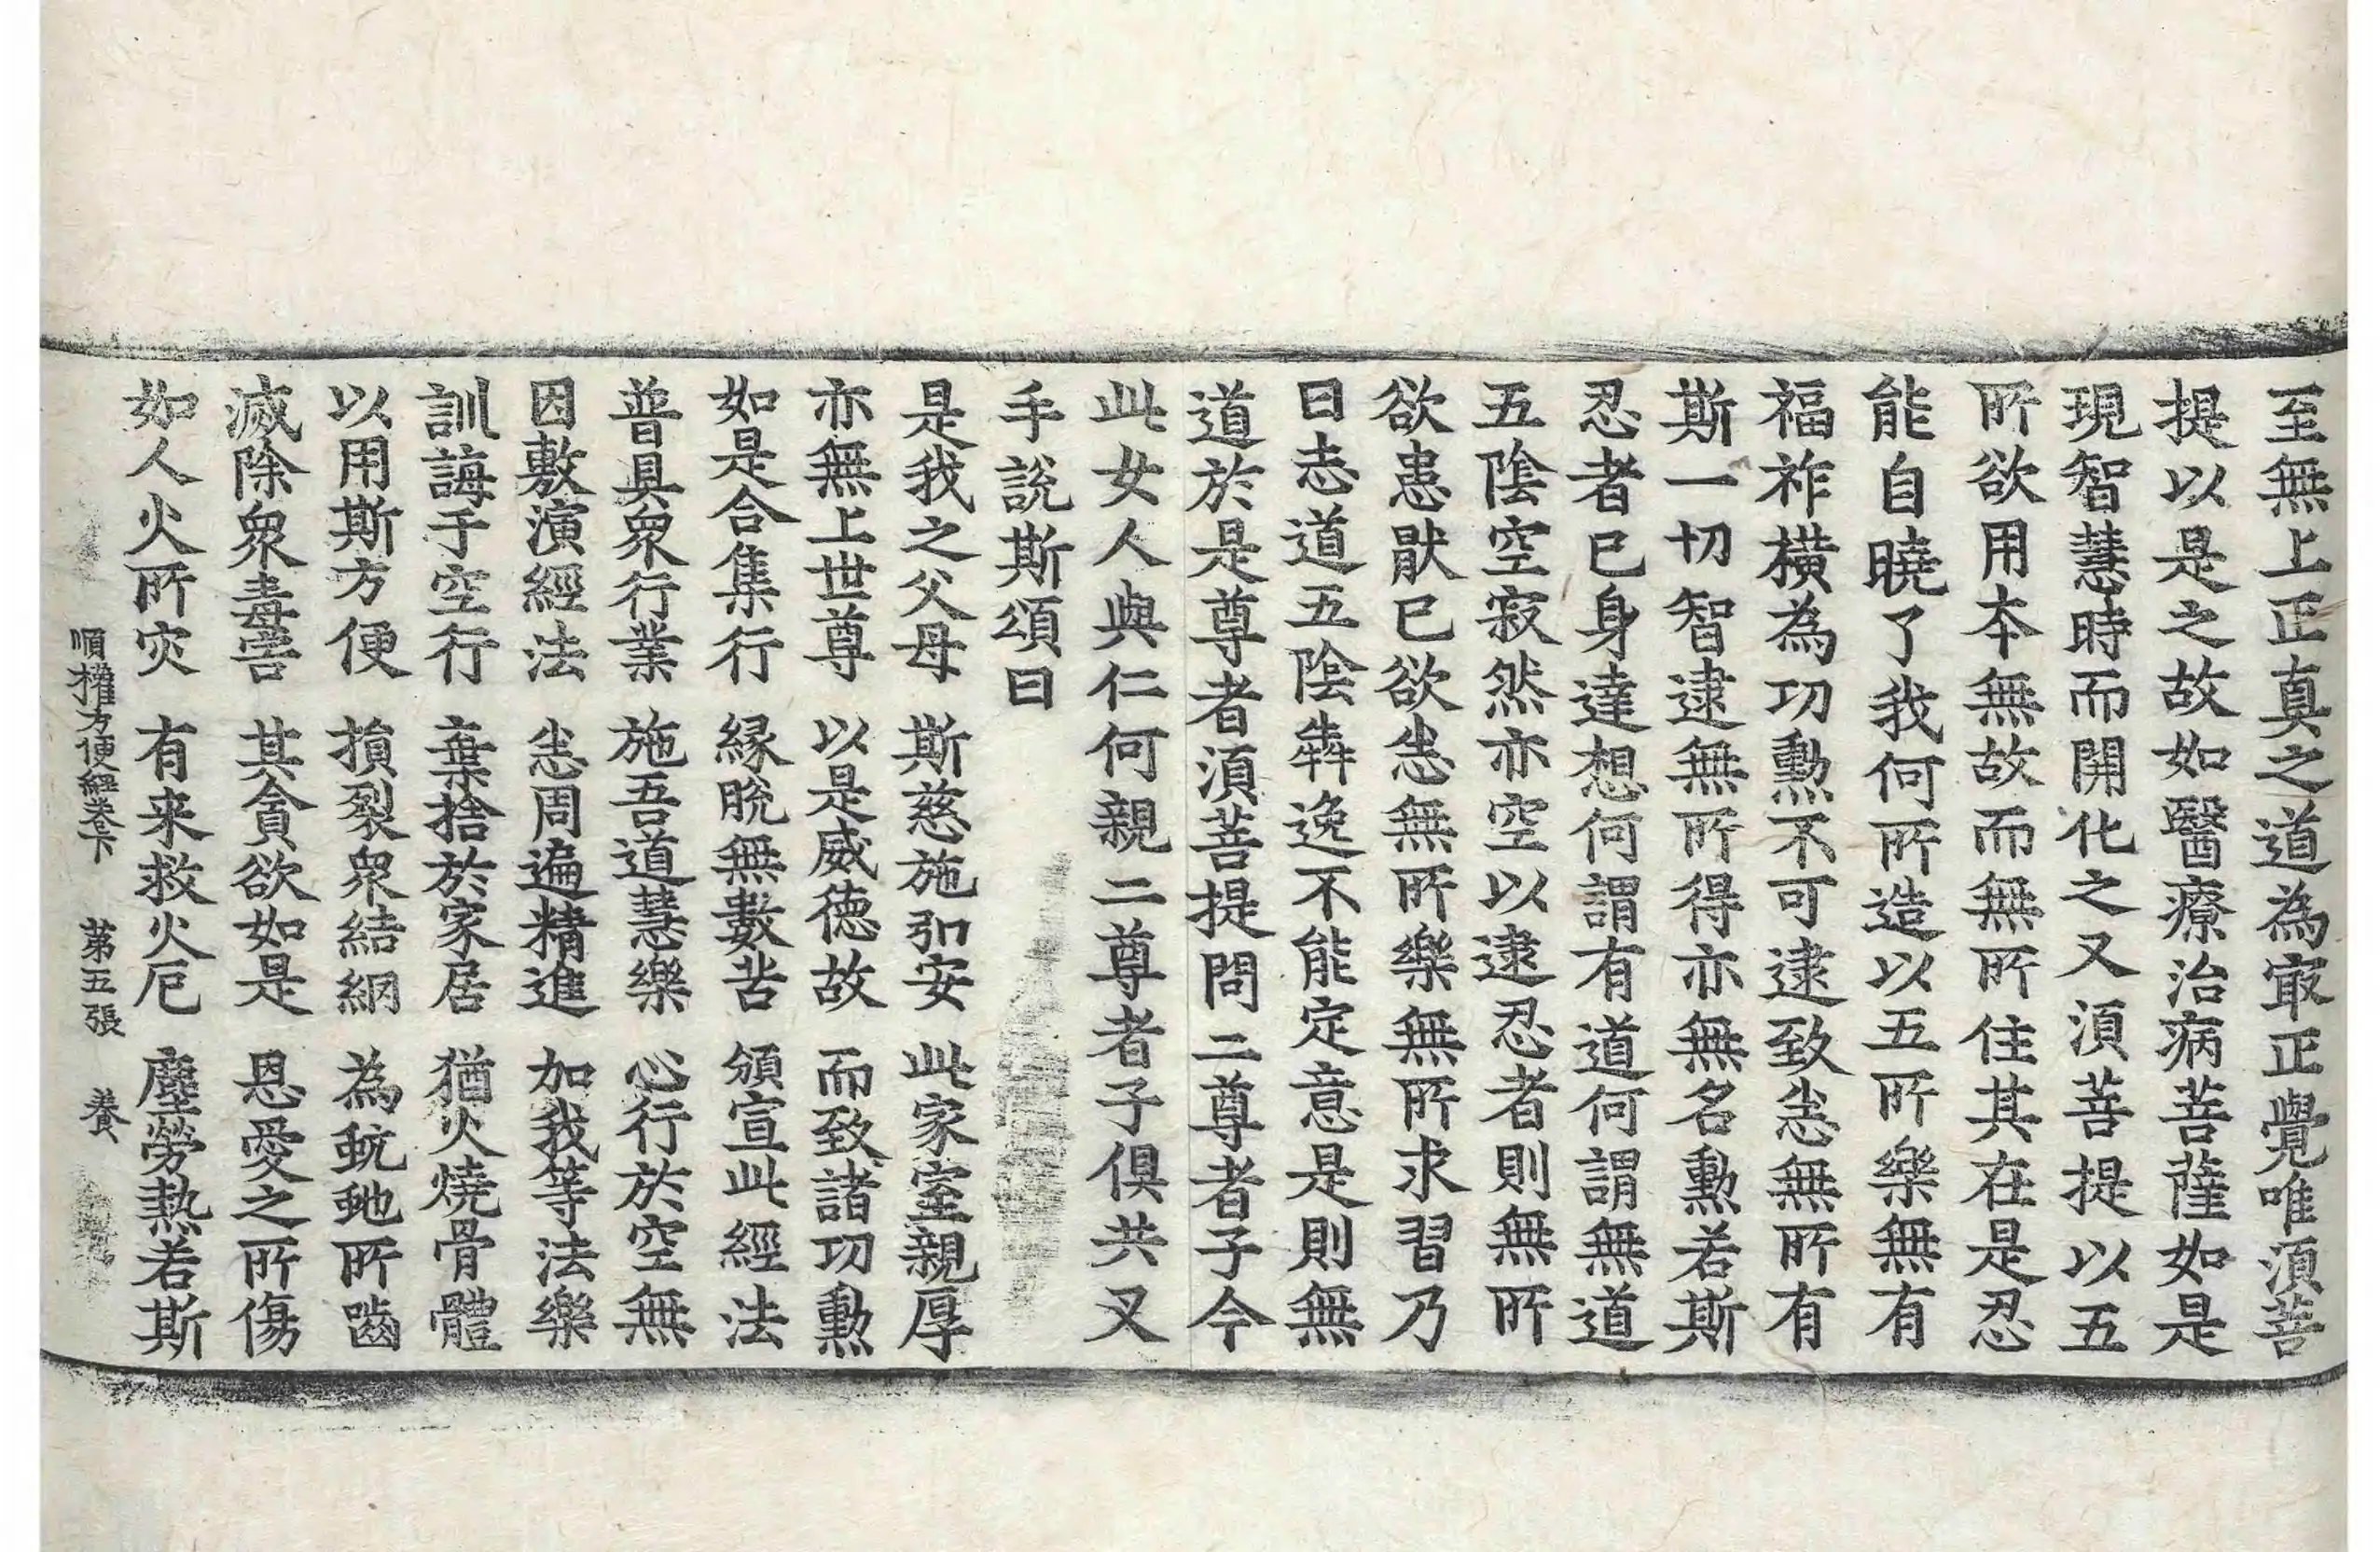 至無上正真之道為㝡正覺唯湏菩
提以是之故如醫療治病菩薩如是
現智慧時而開化之又湏菩提以五
所欲用本無故而無所住其在是忍
能自曉了我何所造以五所樂無有
福祚橫為功勳不可逮致恙無所有
斯一切智逮無所得亦無名勳若斯
忍者已身達想何謂有道何謂無道
五陰空寂然亦空以逮忍者則無所
欲患猒已欲恙無所樂無所求習乃
曰志道五陰犇逸不能定意是則無
道於是尊者湏菩提問二尊者子今
此女人與仁何親二尊者子俱共叉
手說斯頌曰
是我之父母 斯慈施弘安 此家室親厚
亦無上世尊 以是威德故 而致諸功勳
如是合集行 緣脫無數苦 頒宣此經法
普具衆行業 施吾道慧樂 心行於空無
因敷演經法 恙周遍精進 如我等法樂
訓誨于空行 棄捨於家居 猶火燒骨體
以用斯方便 損裂衆結網 為蚖虵所嚙
滅除衆毒害 其貪欲如是 恩愛之所傷
如人火所灾 有来救火厄 塵勞熱若斯
順權方便經卷下 第五張 養